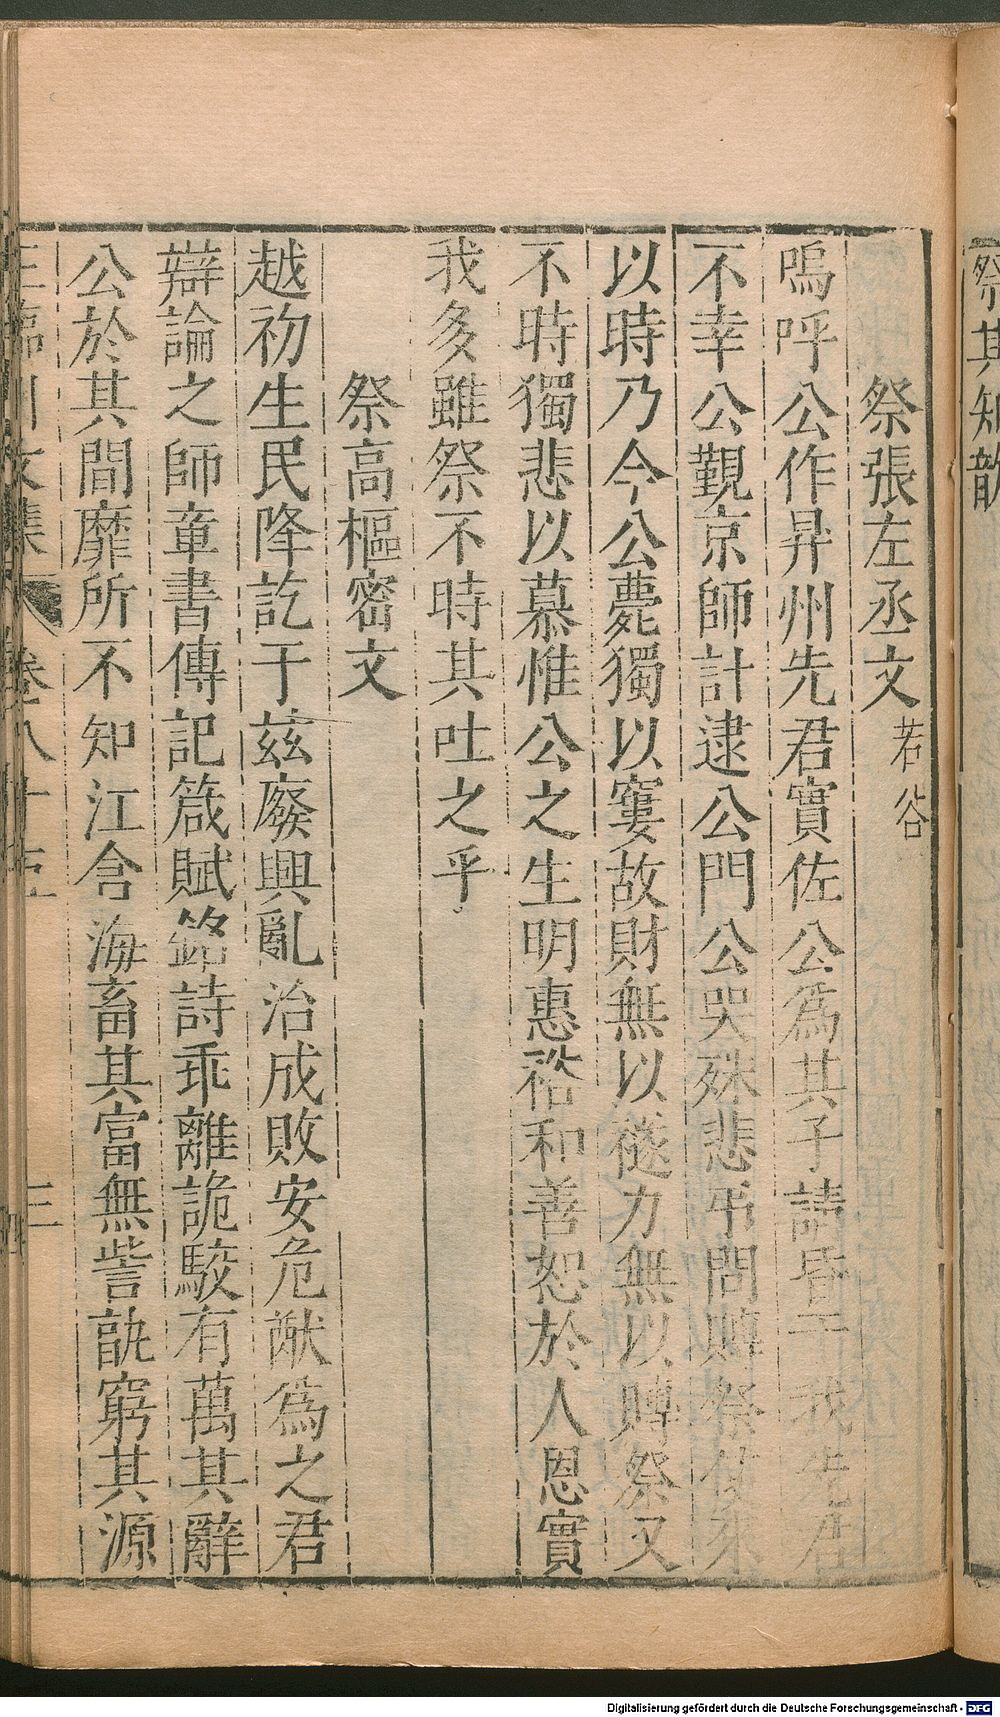 祭其知歆
祭張左丞文 若谷
嗚呼公作昇州先君實佐公爲其子請昏于我先君
不幸公覲京師計逮公門公哭殊悲弔問賻祭使來
以時乃今公薨獨以窶故財無以襚力無以賻祭又
不時獨悲以慕惟公之生明惠裕和善恕於人恩實
我多雖祭不時其吐之乎
祭高樞密文
越初生民降訖于茲廢興亂治成敗安危猷爲之君
辯論之師章書傳記箴賦銘詩乖離詭駮有萬其辭
公於其間靡所不知江含海畜其富無訾訧窮其源
王臨川文集 卷八十五 三
Digitalisierung gefördert durch die Deutsche Forschungsgemeinschaft - DFG